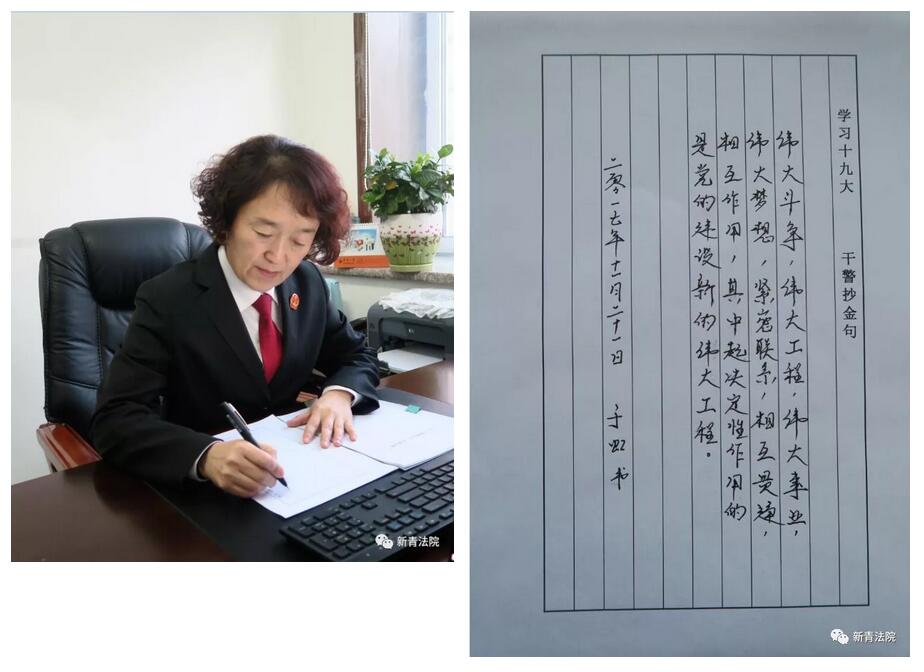 新青法院
学习十九大 干警抄金句
伟大斗争，伟大工程，伟大事业，
伟大梦想，紧密联系，相互贯通，
相互作用，其中起决定性作用的
是党的建设新的伟大工程。
二零一七年十一月二十一日 于虹书
新青法院